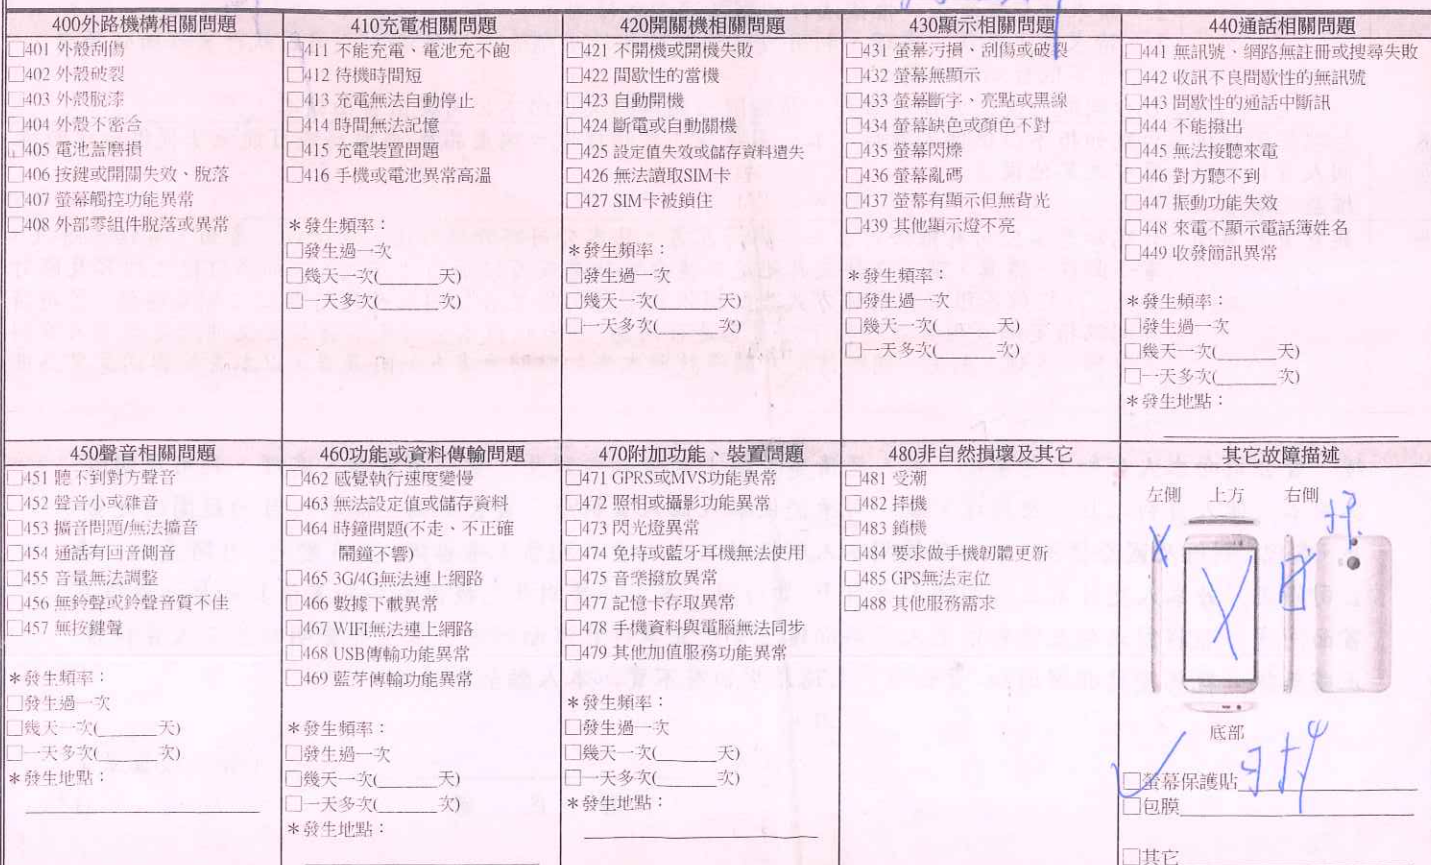 400外路機構相關問題
□401 外殼刮傷
□402 外殼破裂
□403 外殼脫漆
□404 外殼不密合
□405 電池蓋磨損
□406 按鍵或開關失效、脫落
□407 螢幕觸控功能異常
□408 外部零組件脫落或異常
410充電相關問題
□411 不能充電、電池充不飽
□412 待機時間短
□413 充電無法自動停止
□414 時間無法記憶
□415 充電裝置問題
□416 手機或電池異常高溫
＊發生頻率：
□發生過一次
□幾天一次(______天)
□一天多次(______次)
420開關機相關問題
□421 不開機或開機失敗
□422 間歇性的當機
□423 自動開機
□424 斷電或自動關機
□425 設定值失效或儲存資料遺失
□426 無法讀取SIM卡
□427 SIM卡被鎖住
＊發生頻率：
□發生過一次
□幾天一次(______天)
□一天多次(______次)
430顯示相關問題
□431 螢幕污損、刮傷或破裂
□432 螢幕無顯示
□433 螢幕斷字、亮點或黑線
□434 螢幕缺色或顏色不對
□435 螢幕閃爍
□436 螢幕亂碼
□437 螢幕有顯示但無背光
□439 其他顯示燈不亮
＊發生頻率：
□發生過一次
□幾天一次(______天)
□一天多次(______次)
440通話相關問題
□441 無訊號、網路無註冊或搜尋失敗
□442 收訊不良間歇性的無訊號
□443 間歇性的通話中斷訊
□444 不能撥出
□445 無法接聽來電
□446 對方聽不到
□447 振動功能失效
□448 來電不顯示電話簿姓名
□449 收發簡訊異常
＊發生頻率：
□發生過一次
□幾天一次(______天)
□一天多次(______次)
＊發生地點：
450聲音相關問題
□451 聽不到對方聲音
□452 聲音小或雜音
□453 擴音問題/無法擴音
□454 通話有回音側音
□455 音量無法調整
□456 無鈴聲或鈴聲音質不佳
□457 無按鍵聲
＊發生頻率：
□發生過一次
□幾天一次(______天)
□一天多次(______次)
＊發生地點：
460功能或資料傳輸問題
□462 感覺執行速度變慢
□463 無法設定值或儲存資料
□464 時鐘問題(不走、不正確
鬧鐘不響)
□465 3G/4G無法連上網路
□466 數據下載異常
□467 WIFI無法連上網路
□468 USB傳輸功能異常
□469 藍芽傳輸功能異常
＊發生頻率：
□發生過一次
□幾天一次(______天)
□一天多次(______次)
＊發生地點：
470附加功能、裝置問題
□471 GPRS或MVS功能異常
□472 照相或攝影功能異常
□473 閃光燈異常
□474 免持或藍牙耳機無法使用
□475 音樂撥放異常
□477 記憶卡存取異常
□478 手機資料與電腦無法同步
□479 其他加值服務功能異常
＊發生頻率：
□發生過一次
□幾天一次(______天)
□一天多次(______次)
＊發生地點：
480非自然損壞及其它
□481 受潮
□482 摔機
□483 鎖機
□484 要求做手機韌體更新
□485 GPS無法定位
□488 其他服務需求
其它故障描述
左側 上方 右側
底部
□螢幕保護貼
□包膜
□其它